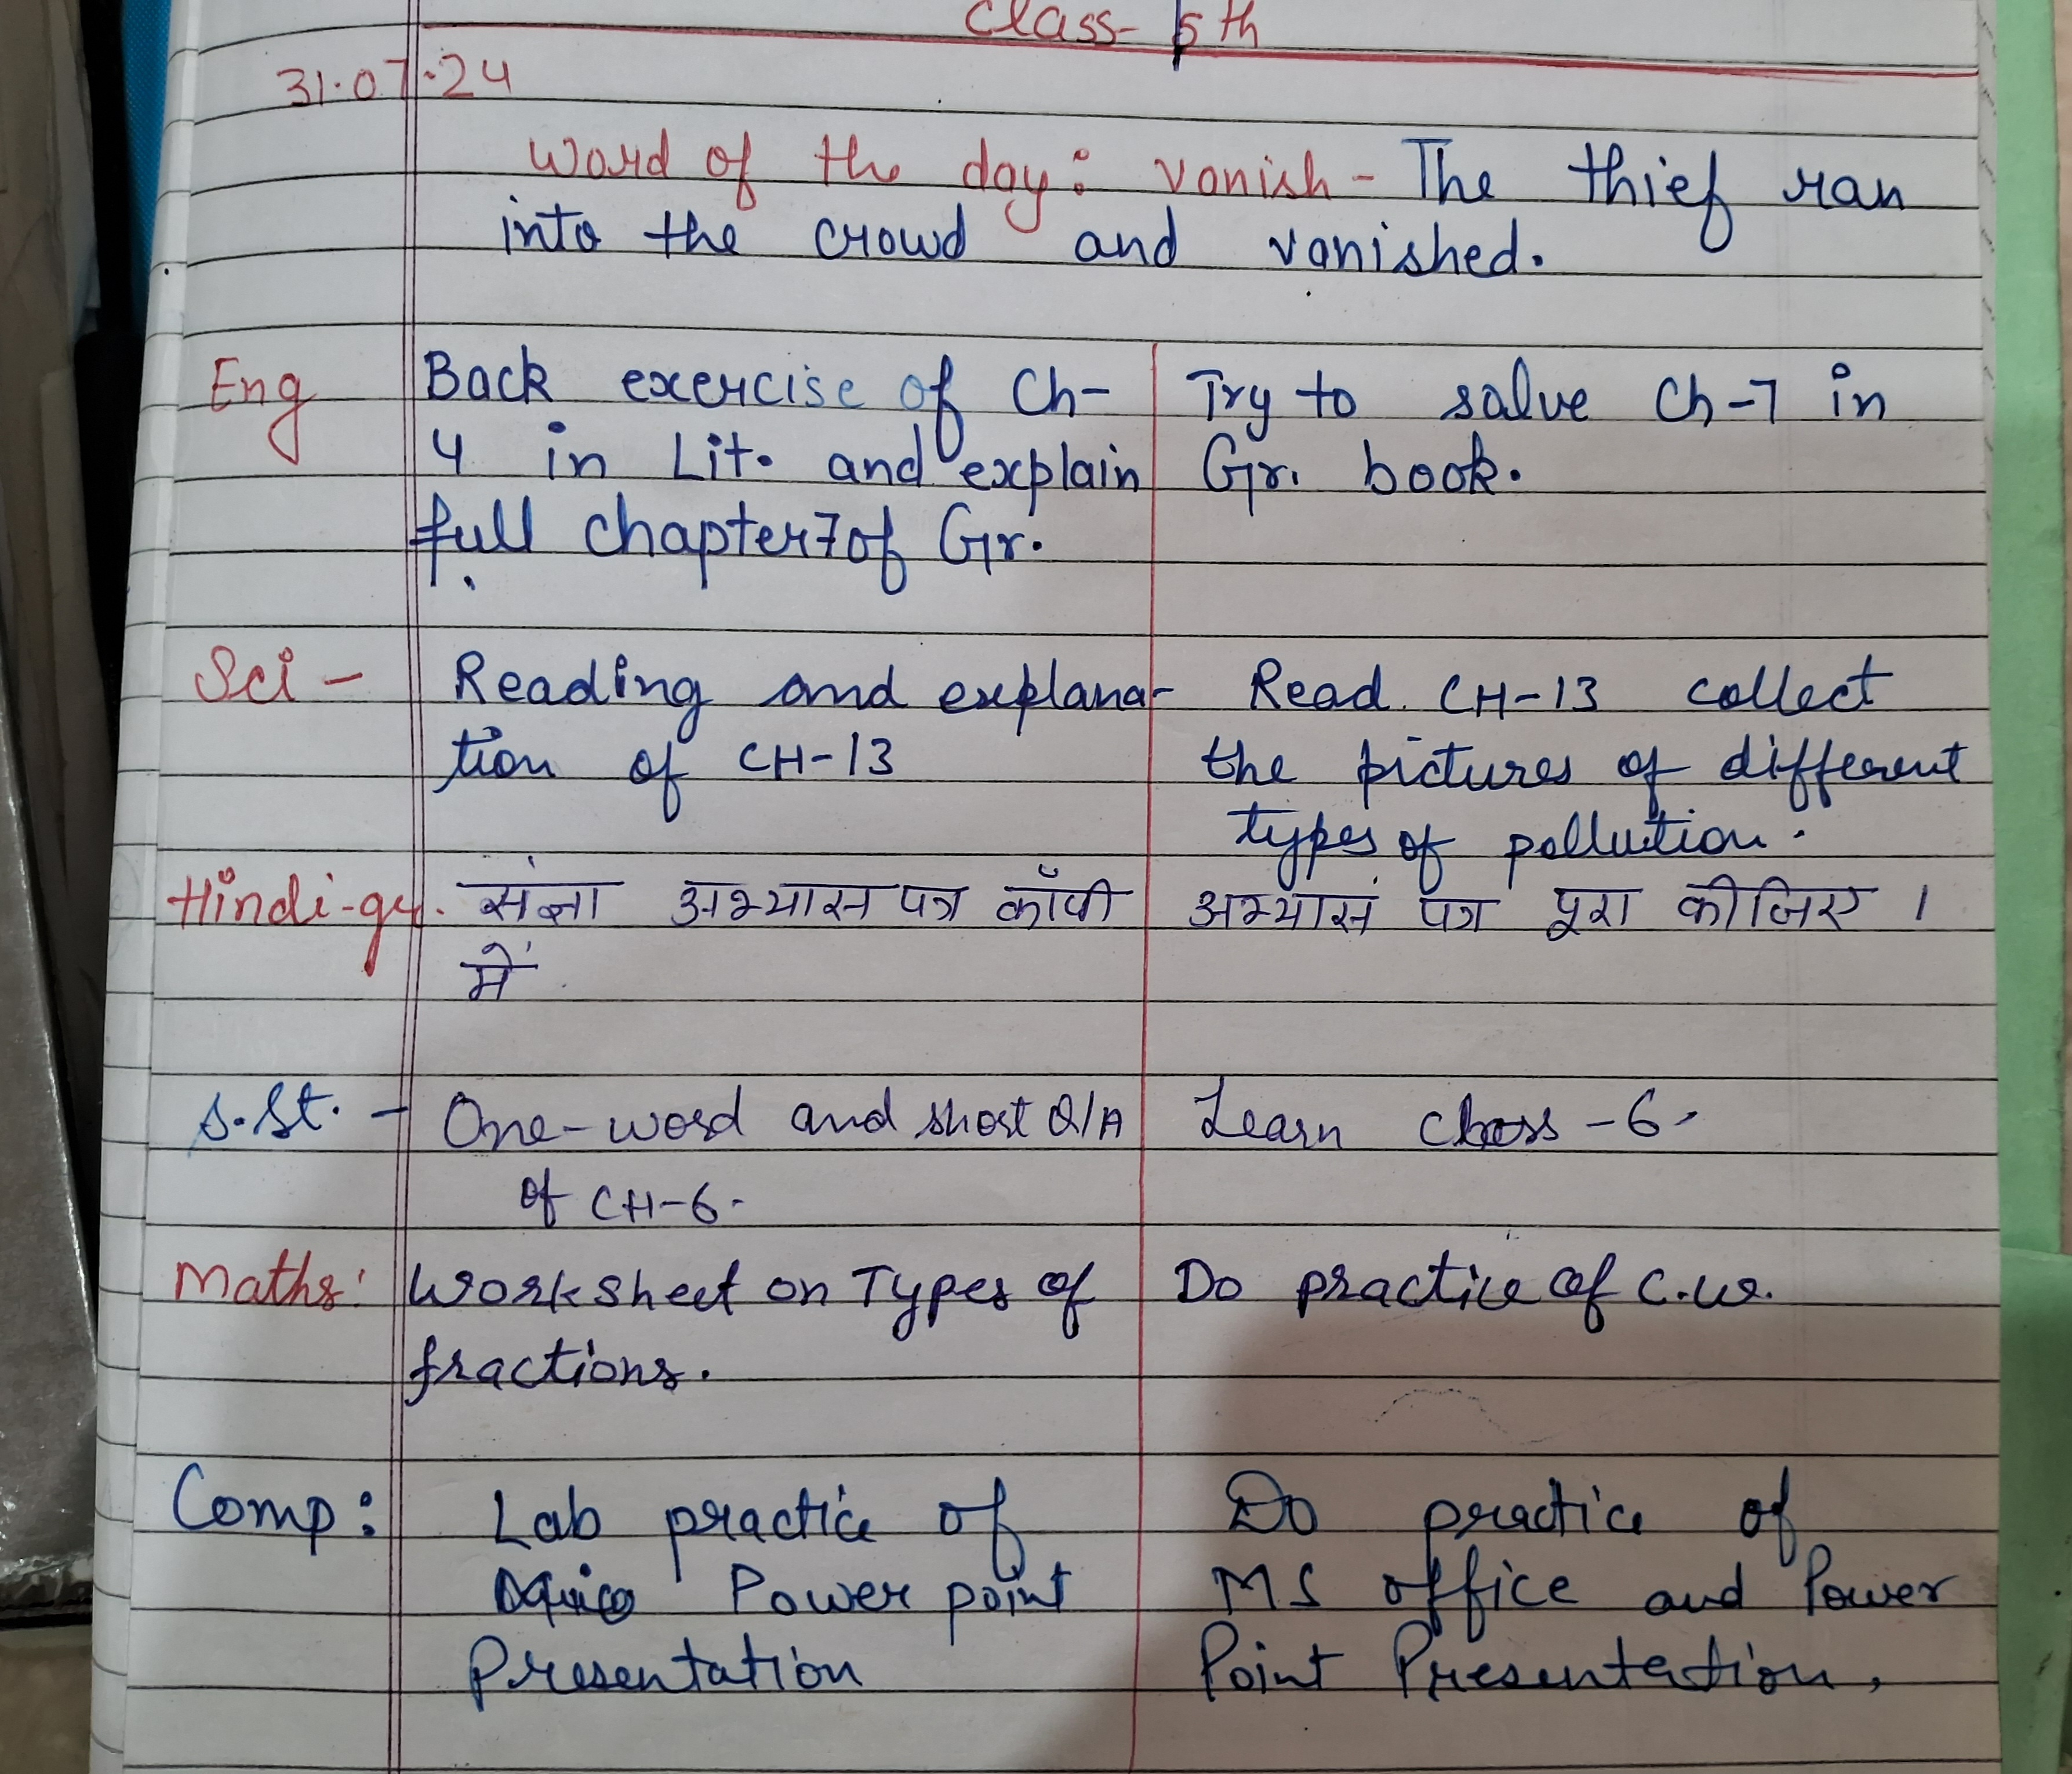 Class- 5th
31.07.24
Word of the day: vanish - The thief ran
into the crowd and vanished.
Eng
Back exercise of Ch-
4 in Lit. and explain
full chapter 7 of Gr.
Try to solve Ch-7 in
Gr. book.
Sci -
Reading and explana-
tion of CH-13
Read CH-13 collect
the pictures of different
types of pollution.
Hindi-gr.
संज्ञा अभ्यास पत्र कॉपी
में
अभ्यास पत्र पूरा कीजिए ।
S.St. -
One-word and short Q/A
of CH-6.
Learn -6.
Maths:
Worksheet on Types of
fractions.
Do practice of C.W.
Comp:
Lab practice of
Power point
Presentation
Do practice of
MS office and Power
Point Presentation,